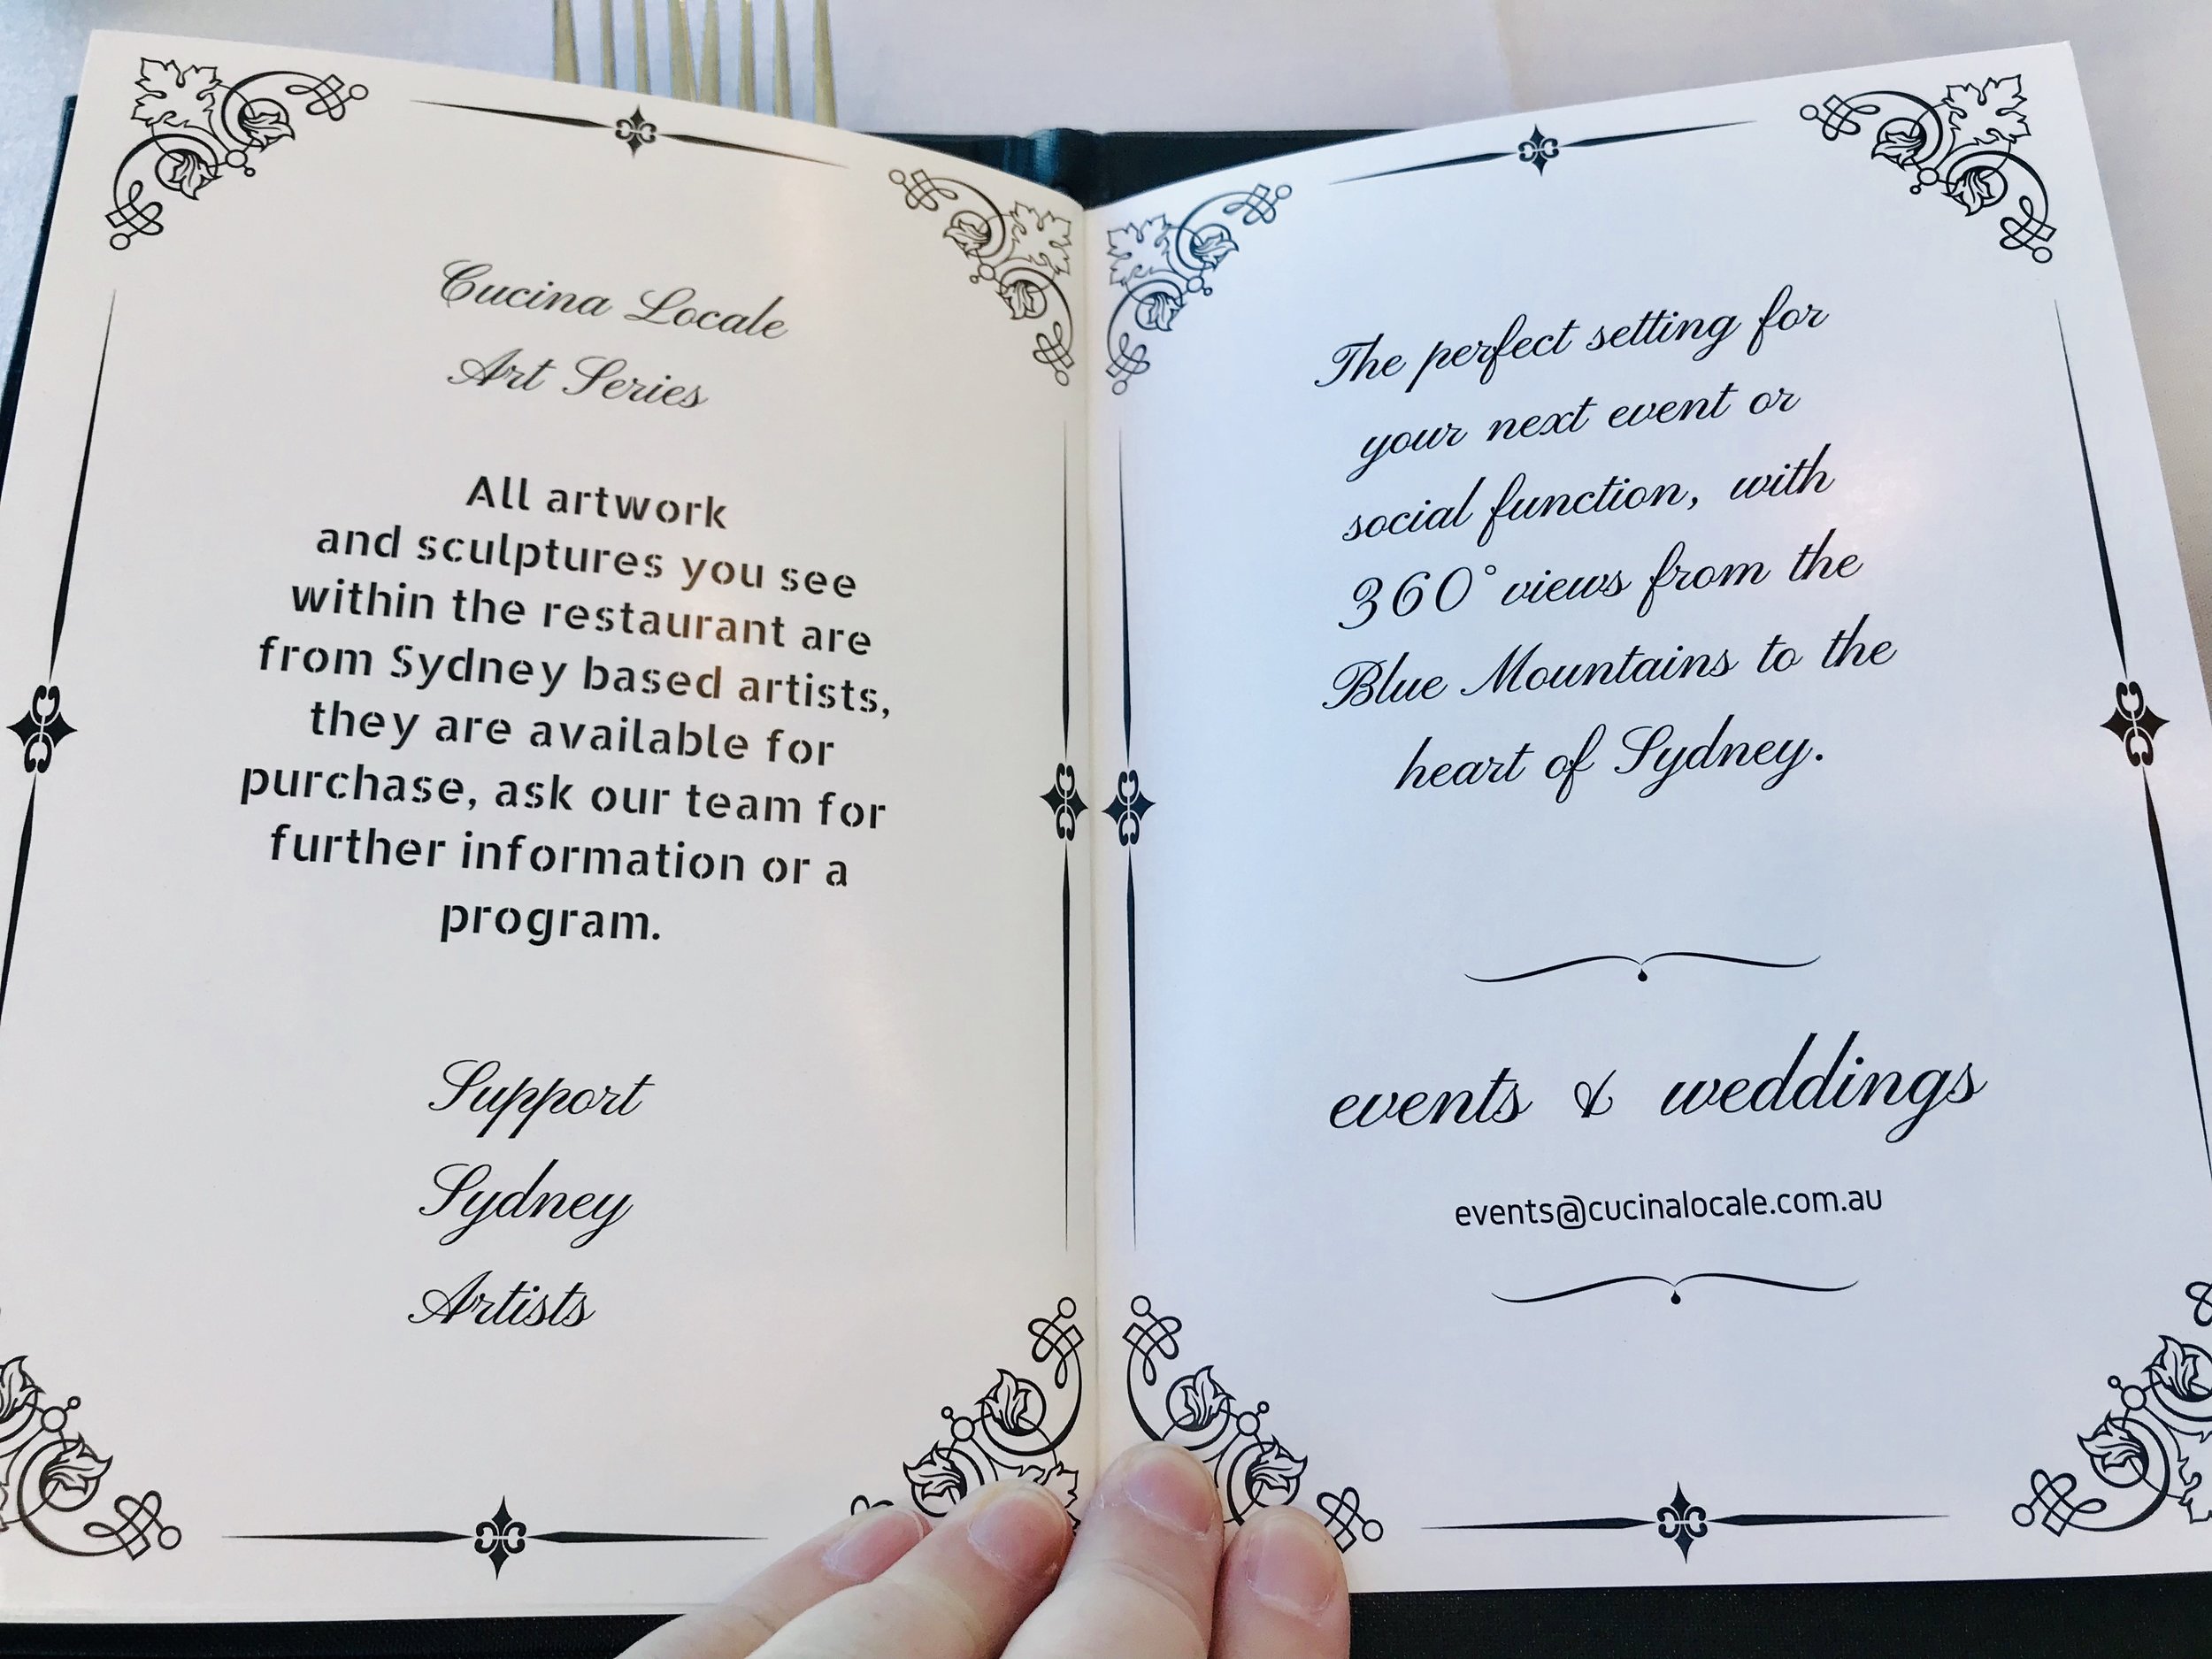 Cucina Locale
Art Series
All artwork
and sculptures you see
within the restaurant are
from Sydney based artists,
they are available for
purchase, ask our team for
further information or a
program.
Support
Sydney
Artists
The perfect setting for
your next event or
social function, with
360° views from the
Blue Mountains to the
heart of Sydney.
events & weddings
events@cucinalocale.com.au